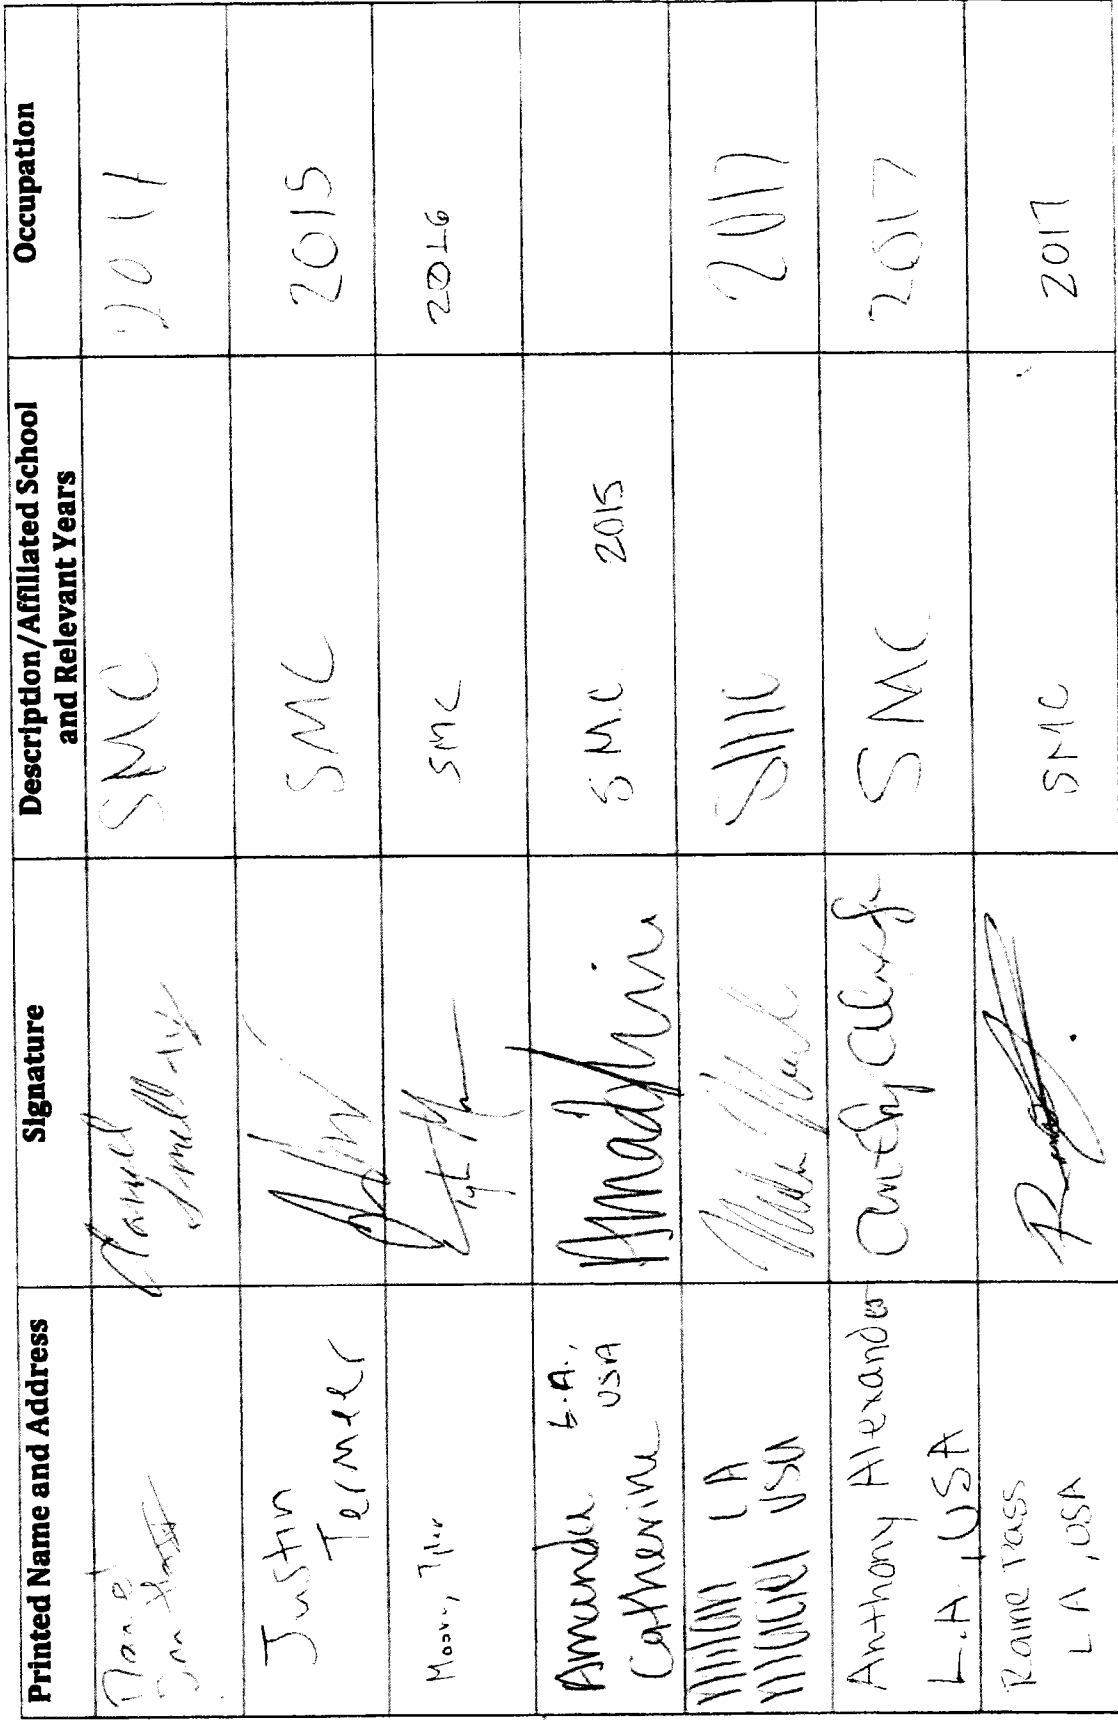 Printed Name and Address
Signature
Description/Affiliated School
and Relevant Years
Occupation
SMC
2017
Justin
Termeer
SMC
2015
Moore, Tyler
SMC
2016
Amanda L.A.,
Catherine USA
S M.C 2015
LA
USA
SMC
2017
Anthony Alexander
L.A., USA
Anthony Alexander
SMC
2017
Raine Pass
L A, USA
SMC
2017